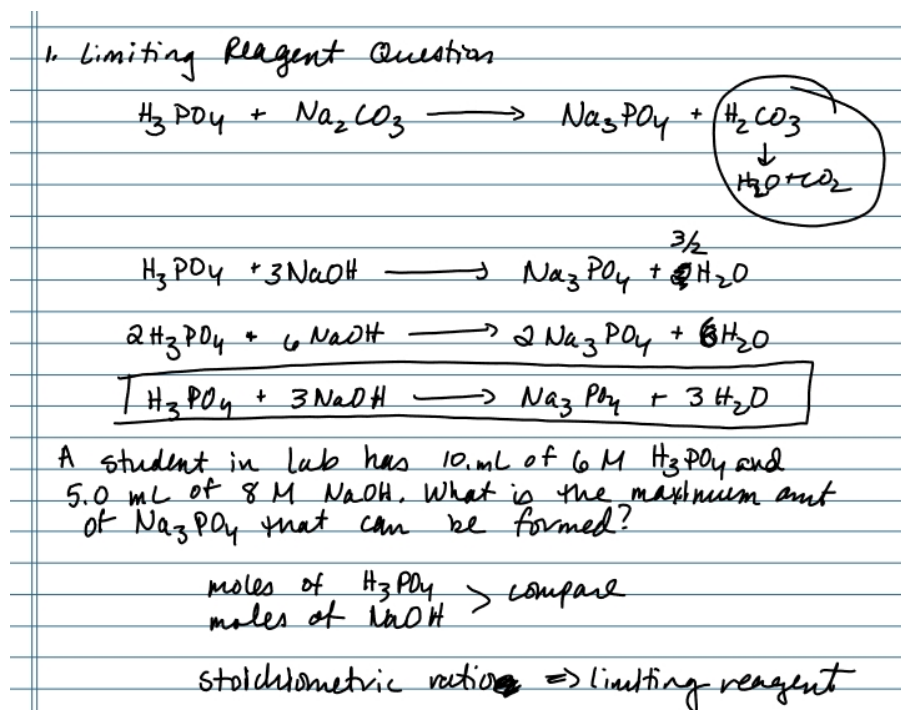 1. Limiting Reagent Question
H₃PO₄ + Na₂CO₃ ⟶ Na₃PO₄ + H₂CO₃
↓
H₂O + CO₂
3/2
H₃PO₄ + 3NaOH ⟶ Na₃PO₄ + H₂O
2H₃PO₄ + 6NaOH ⟶ 2Na₃PO₄ + 6H₂O
H₃PO₄ + 3NaOH ⟶ Na₃PO₄ + 3H₂O
A student in lab has 10. mL of 6 M H₃PO₄ and
5.0 mL of 8 M NaOH. What is the maximum amt
of Na₃PO₄ that can be formed?
moles of H₃PO₄
moles of NaOH > compare
stoichiometric ratio ⇒ limiting reagent